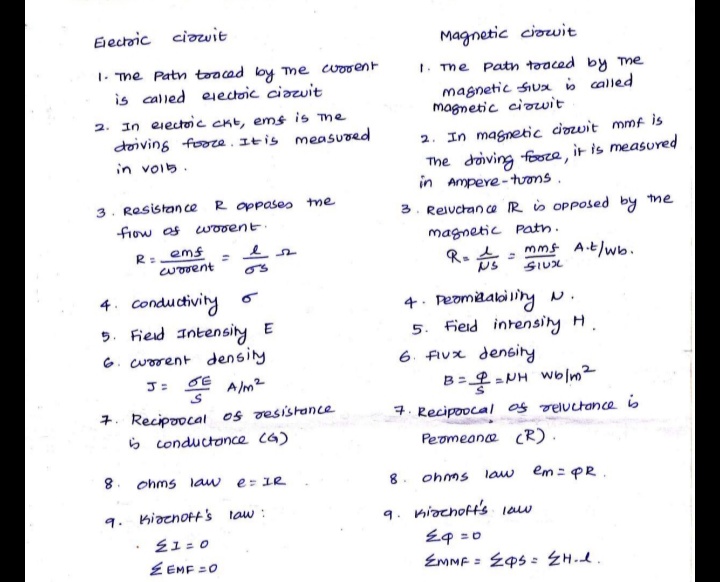 Electric circuit
1. The path traced by the current
is called electric circuit
2. In electric ckt, emf is the
driving force. It is measured
in volts.
3. Resistance R opposes the
flow of current.
R = emf/current = l/σs Ω
4. conductivity σ
5. Field Intensity E
6. current density
J = σE/S A/m²
7. Reciprocal of resistance
is conductance (G)
8. ohms law e = IR
9. Kirchoff's law :
ΣI = 0
ΣEMF = 0
Magnetic circuit
1. The path traced by the
magnetic flux is called
magnetic circuit
2. In magnetic circuit mmf is
the driving force, it is measured
in Ampere-turns.
3. Reluctance R is opposed by the
magnetic path.
R = l/μs = mmf/flux A.t/wb.
4. Permitability μ.
5. Field intensity H.
6. Flux density
B = φ/S = μH Wb/m²
7. Reciprocal of reluctance is
Permeance (R).
8. ohms law em = φR.
9. Kirchoff's law
Σφ = 0
ΣMMF = ΣφS = ΣH.l.